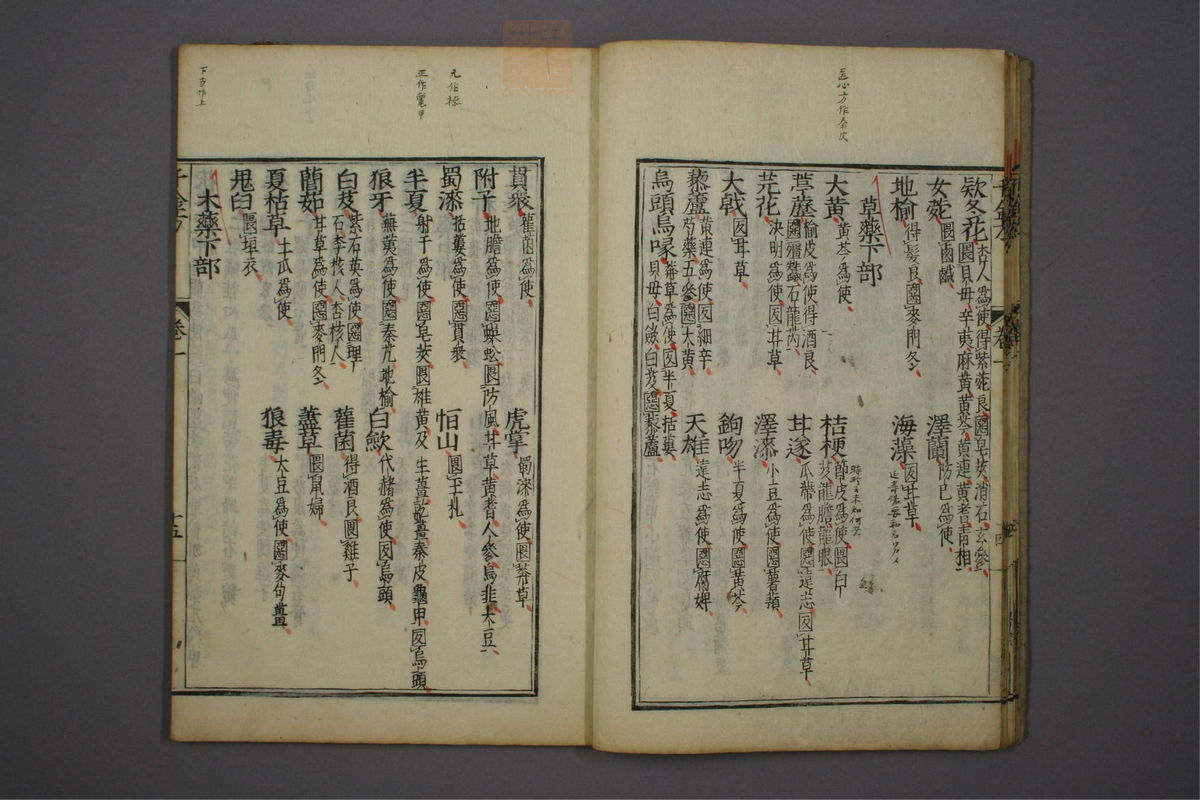 医心方作秦皮
千金方 卷一
欵冬花 杏人為使得紫菀良惡皂莢消石玄參
畏貝母辛夷麻黃黃芩黃連黃耆青相
女菀 畏鹵鹹
澤蘭 防已為使
地榆 得髮良惡麥門冬
海藻 反甘草
草藥下部
大黃 黃芩為使
桔梗 節皮為使畏白芨龍膽龍眼
葶藶 榆皮為使得酒良惡殭蠶石龍芮
甘遂 瓜蒂為使惡遠志反甘草
芫花 決明為使反甘草
澤漆 小豆為使惡薯蕷
大戟 反甘草
鉤吻 半夏為使惡黃芩
藜蘆 黃連為使反細辛芍藥五參惡大黃
天雄 遠志為使惡腐婢
烏頭烏喙 莽草為使反半夏栝蔞貝母白蘞白芨惡藜蘆
元作椽
正作鼈甲
下当作上
貫衆 雚菌為使
虎掌 蜀漆為使畏莽草
附子 地膽為使惡蜈蚣畏防風甘草黃耆人參烏韭大豆
蜀漆 栝蔞為使惡貫衆
恒山 畏玉札
半夏 射干為使惡皂莢畏雄黃及生薑乾薑秦皮龜甲反烏頭
狼牙 蕪荑為使惡秦艽地榆
白蘞 代赭為使反烏頭
白芨 紫石英為使惡理石李核人杏核人
雚菌 得酒良畏雞子
䕡茹 甘草為使惡麥門冬
藎草 畏鼠婦
夏枯草 土瓜為使
狼毒 大豆為使惡麥句薑
鬼臼 畏垣衣
木藥下部
千金方 卷一 十五